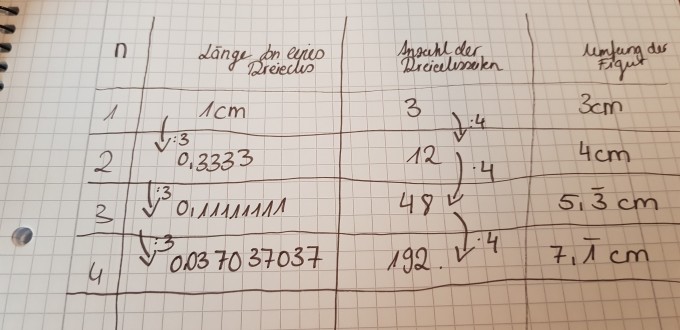 n Länge bn eines Dreiecks Anzahl der Dreiecksseiten Umfang der Figur
1 1cm 3 3cm
:3 :4
2 0,3333 12 4cm
:3 ·4
3 0,11111111 48 5,3̅ cm
:3 ·4
4 0,037037037 192. 7,1̅ cm